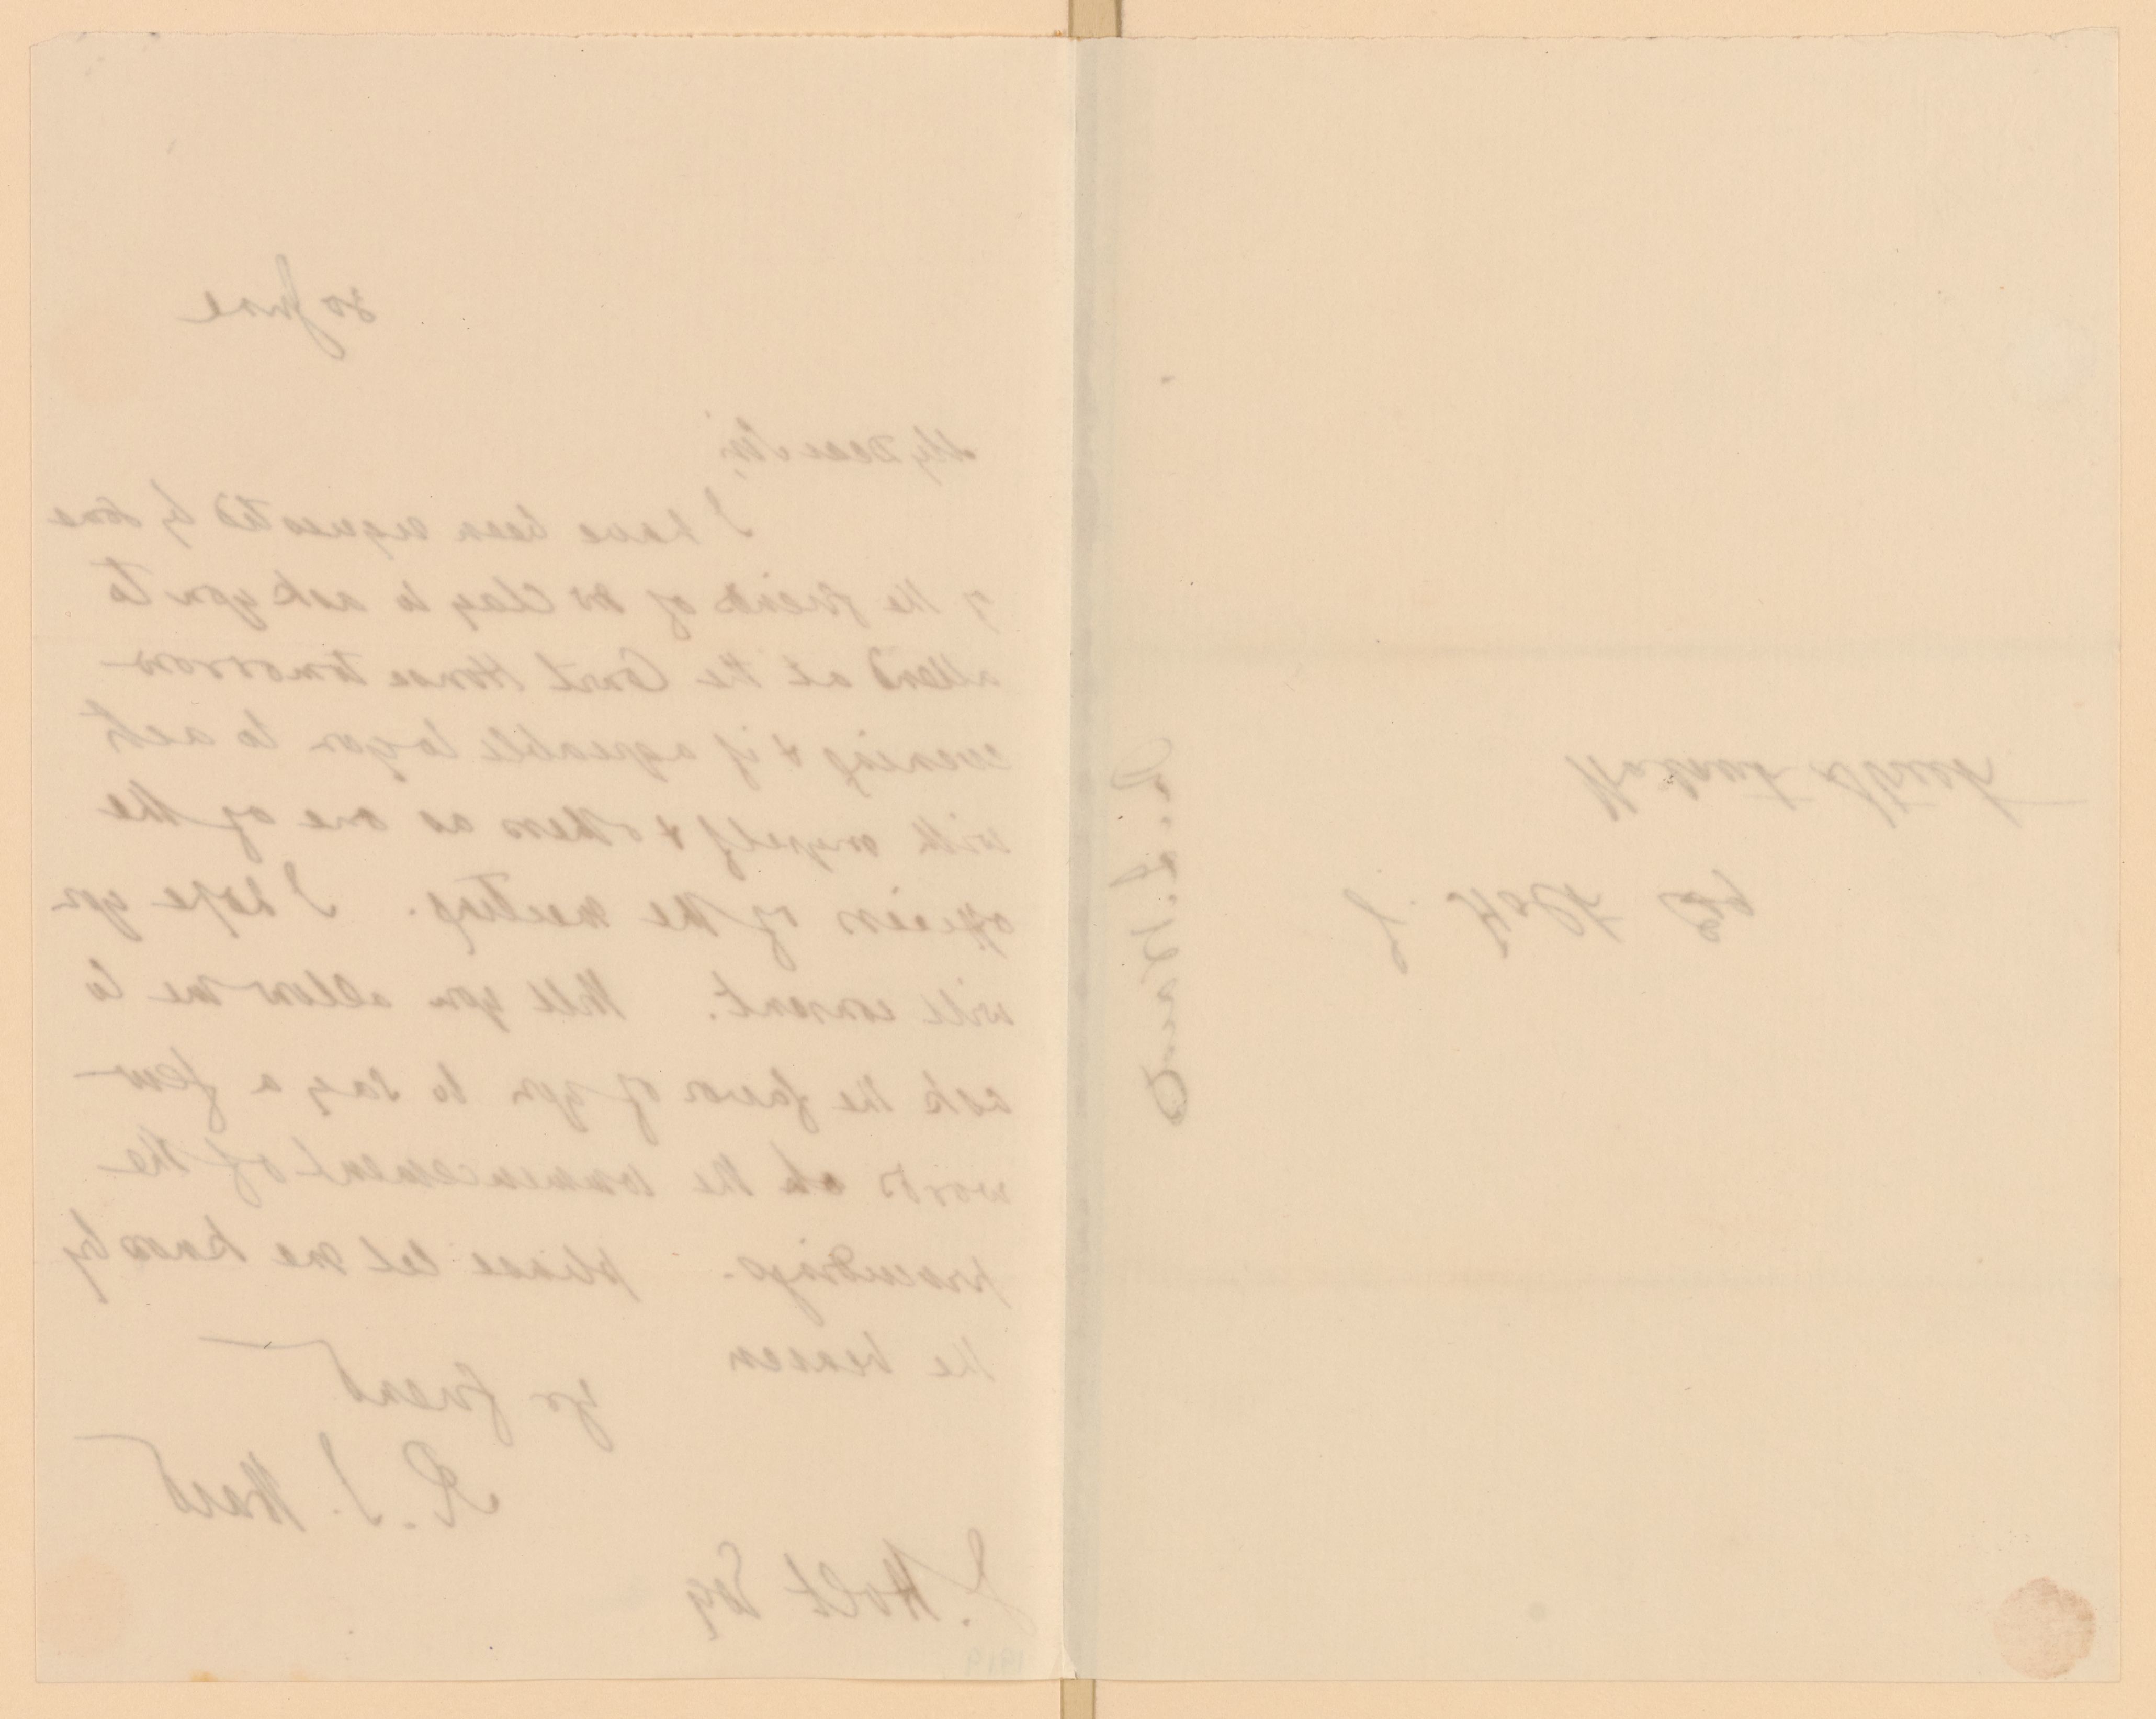 30 June
My Dear Sir,
I have been requested by some
of the friends of Mr Clay to ask you to
attend at the Court House tomorrow
evening & if agreeable to you to act
with myself & others as one of the
officers of the meeting. I hope you
will consent. Will you allow me to
ask the favor of you to say a few
words at the commencement of the
proceedings. please let me know by
the bearer
Yr friend
R. J. Ward
J. Holt Esq
1919
J. Holt Esq
Walnut Street
R. J. Ward